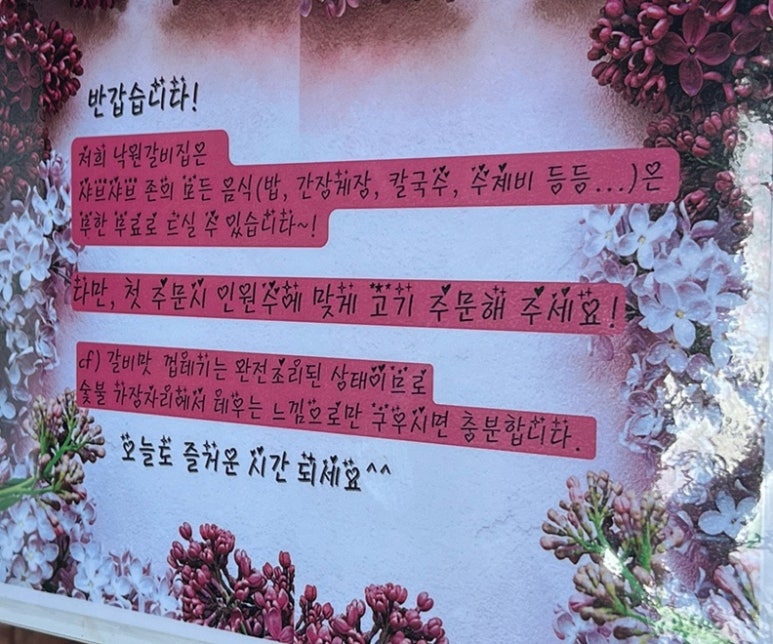 반갑습니다!
저희 낙원갈비집은
샤브샤브 존의 모든 음식(밥, 간장게장, 칼국수, 수제비 등등...)은
무한 무료로 드실 수 있습니다~!
다만, 첫 주문시 인원수에 맞게 고기 주문해 주세요!
cf) 갈비맛 껍데기는 완전조리된 상태이므로
숯불 가장자리에서 데우는 느낌으로만 구우시면 충분합니다.
오늘도 즐거운 시간 되세요^^